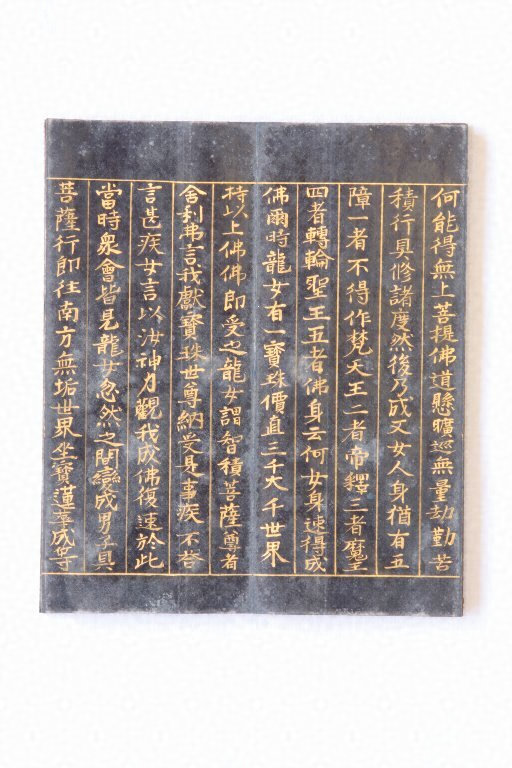 何能得無上菩提佛道懸曠逕無量劫勤苦
積行具修諸度然後乃成又女人身猶有五
障一者不得作梵天王二者帝釋三者魔王
四者轉輪聖王五者佛身云何女身速得成
佛爾時龍女有一寶珠價直三千大千世界
持以上佛佛即受之龍女謂智積菩薩尊者
舍利弗言我獻寶珠世尊納受是事疾不答
言甚疾女言以汝神力觀我成佛復速於此
當時衆會皆見龍女忽然之間變成男子具
菩薩行即往南方無垢世界坐寶蓮華成等